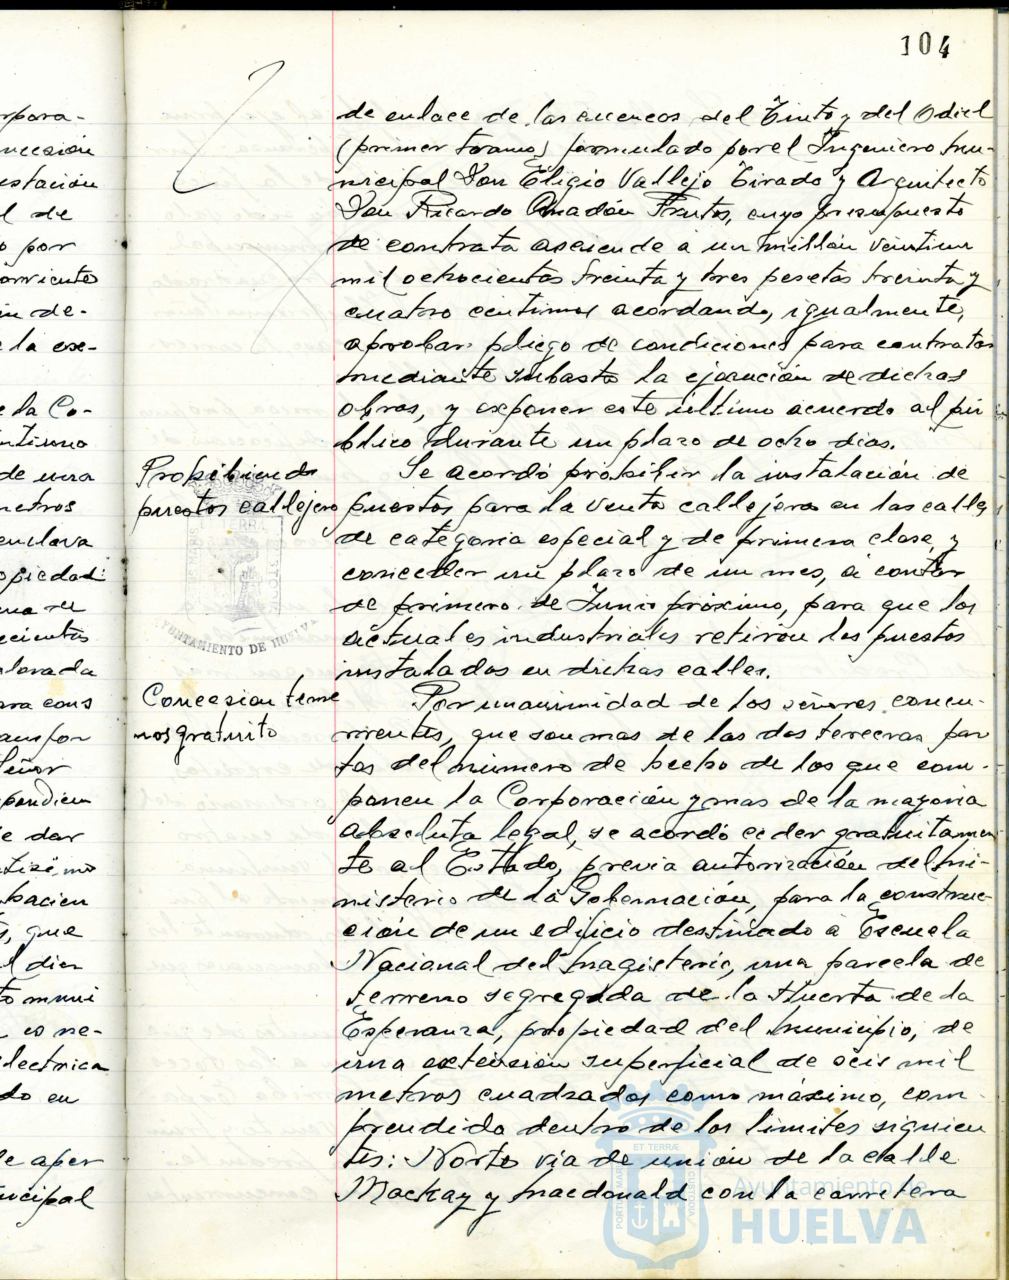 104
de enlace de las cuencas del Tinto y del Odiel
(primer tramo) formulado por el Ingeniero Mu-
nicipal Don Eligio Vallejo Tirado y Arquitecto
Don Ricardo Anadón Frutos, cuyo presupuesto
de contrata asciende a un millón veintiun
mil ochocientas treinta y tres pesetas treinta y
cuatro centimos acordando, igualmente,
aprobar pliego de condiciones para contratar
mediante subasta la ejecución de dichas
obras, y exponer este último acuerdo al pú
blico durante un plazo de ocho dias.
Prohibiendo
puestos callejero
Se acordó prohibir la instalación de
puestos para la venta callejera en las calles
de categoria especial y de primera clase, y
conceder un plazo de un mes, a contar
de primero de Junio próximo, para que los
actuales industriales retiren los puestos
instalados en dichas calles.
Concesion terre
nos gratuito
Por unanimidad de los señores concu-
rrentes, que son mas de las dos terceras par
tes del número de hecho de los que com-
ponen la Corporación y mas de la mayoria
absoluta legal, se acordó ceder gratuitamen
te al Estado, previa autorización del Mi-
nisterio de la Gobernación, para la construc-
ción de un edificio destinado a Escuela
Nacional del Magisterio, una parcela de
terreno segregada de la Huerta de la
Esperanza, propiedad del Municipio, de
una extension superficial de seis mil
metros cuadrados como máximo, com-
prendida dentro de los limites siguien
tes: Norte via de unión de la calle
Mackay y Macdonald con la carretera
rpora-
ncesión
estación
l de
o por
onviente
in de-
e la exe-
e la Co-
ntisimo
de una
metros
enclava
opiedad
una de
ecientas
lorada
ara cons
eñor
pondien
e dar
bacien
s, que
l dier
to muni
co ne-
lectrica
do en
le aper
nicipal
AYUNTAMIENTO DE HUELVA
ET TERRÆ
Ayuntamiento de
HUELVA